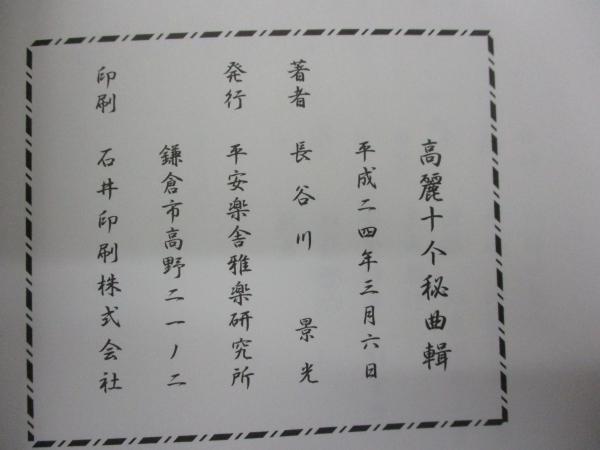 高麗十个秘曲輯
平成二四年三月六日
著者 長谷川 景光
発行 平安楽舎雅楽研究所
鎌倉市高野二一ノ二
印刷 石井印刷株式会社